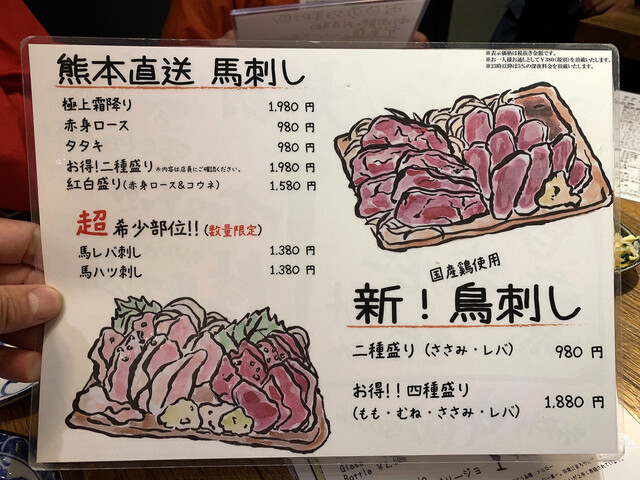 ※表示価格は税抜き金額です。
※お一人様お通しとして¥380(税別)を頂戴いたします。
※23時以降は5%の深夜料金を頂戴いたします。
熊本直送 馬刺し
極上霜降り 1.980 円
赤身ロース 980 円
タタキ 980 円
お得!二種盛り※内容は店員にご確認ください。 1.980 円
紅白盛り(赤身ロース&コウネ) 1.580 円
超 希少部位!!(数量限定)
馬レバ刺し 1.380 円
馬ハツ刺し 1.380 円
国産鶏使用
新！鳥刺し
二種盛り(ささみ・レバ) 980 円
お得!!四種盛り
(もも・むね・ささみ・レバ) 1.880 円
Glass
Bottle ¥2.